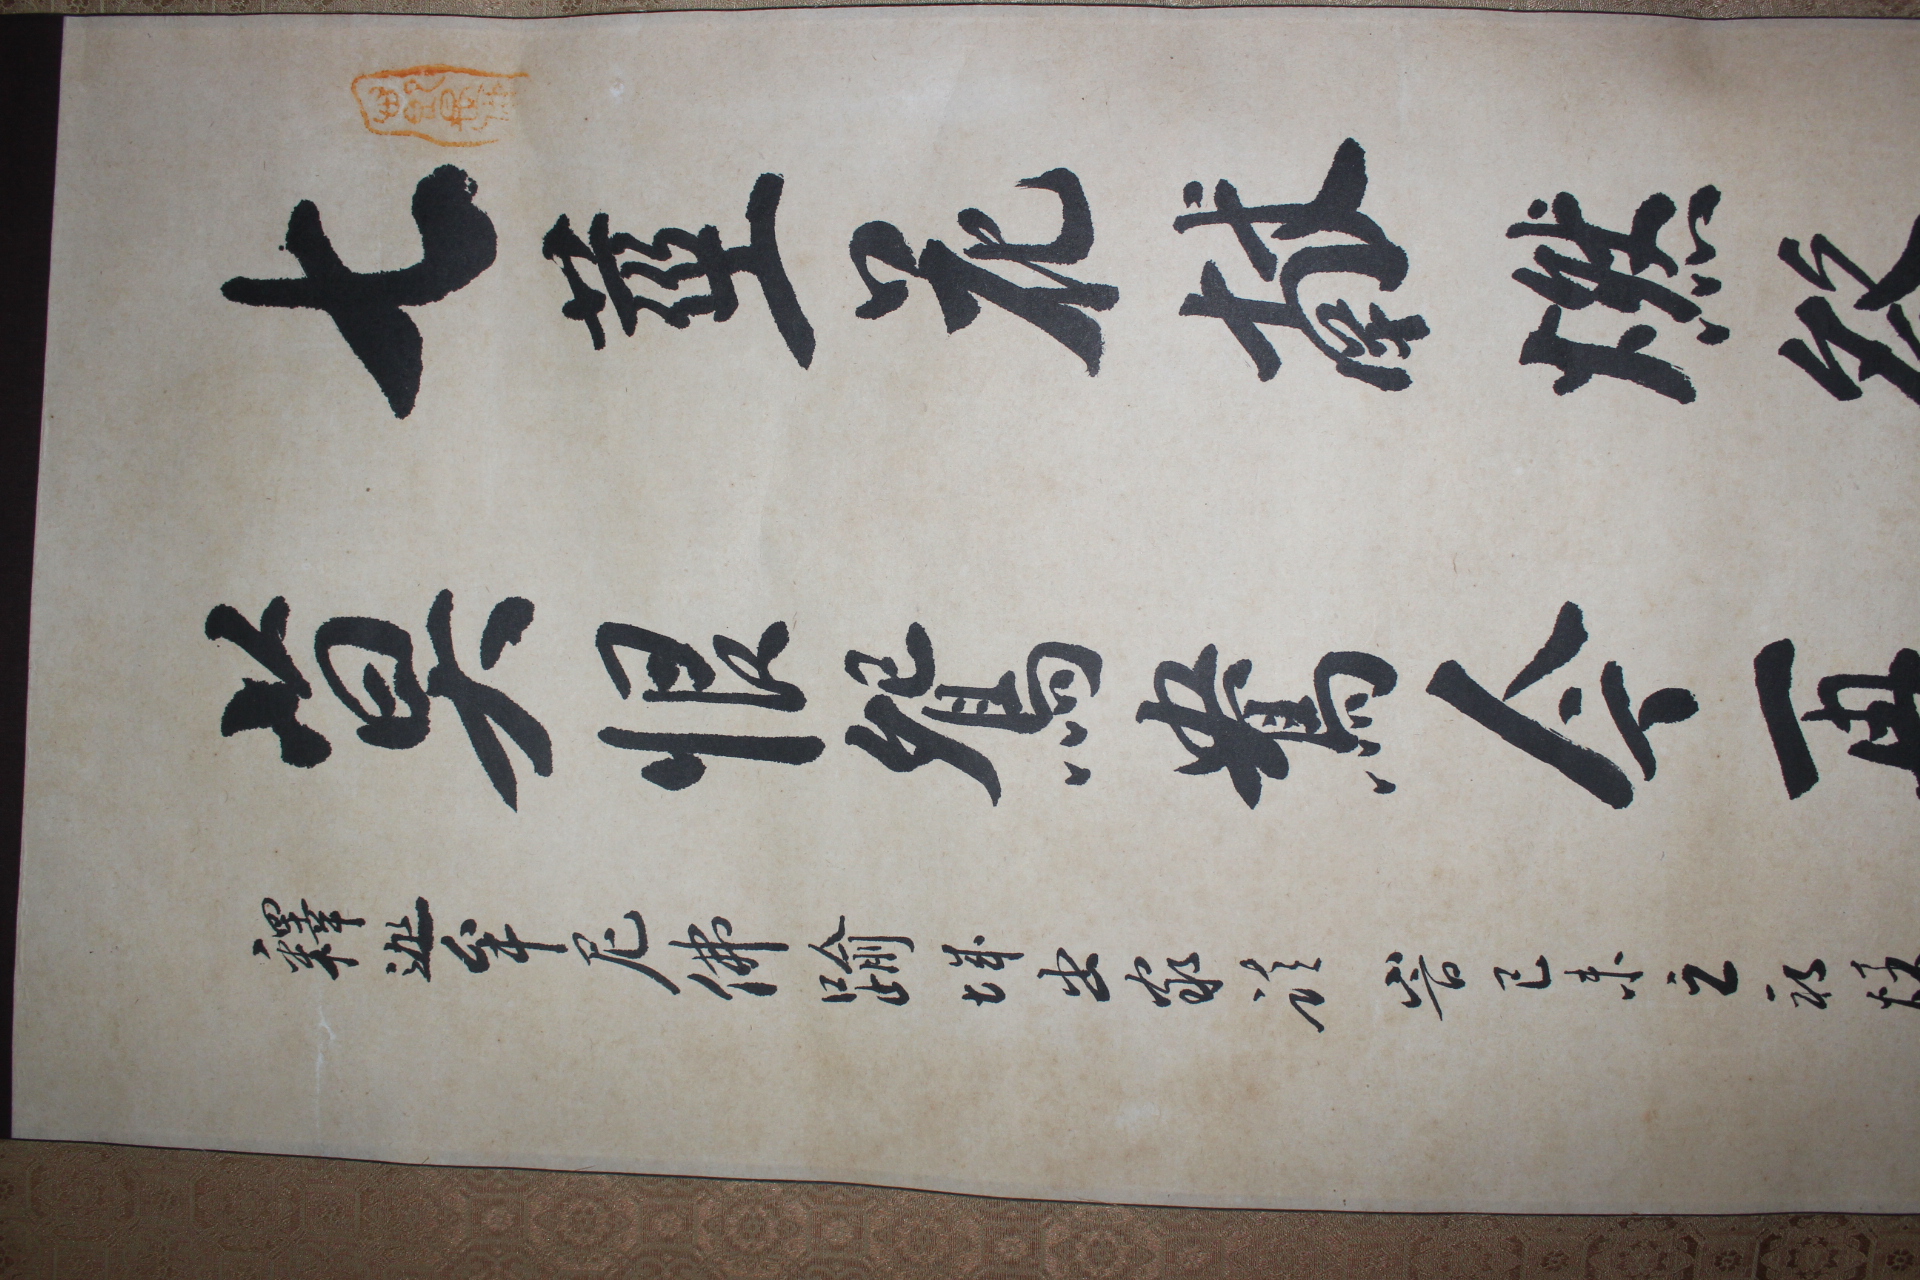 七莖花献燃發
莫恨鴛鴦今再
釋迦牟尼佛踰城出家讃 峕己未之初